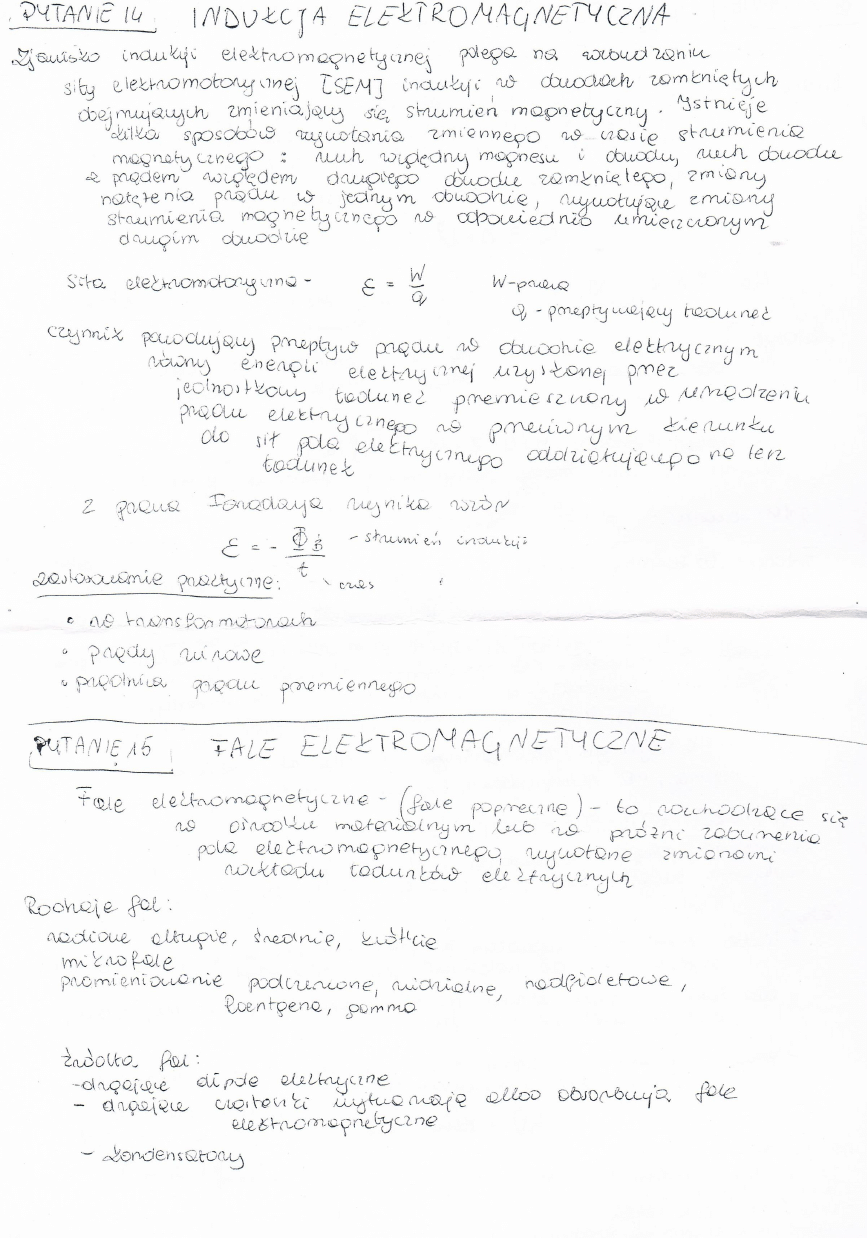 PYTANIE 14 INDUKCJA ELEKTROMAGNETYCZNA
Zjawisko indukcji elektromagnetycznej polega na wzbudzaniu
siły elektromotorycznej [SEM] indukcji w obwodach zamkniętych
obejmujących zmieniający się strumień magnetyczny. Istnieje
kilka sposobów wywołania zmiennego w czasie strumienia
magnetycznego: ruch względny magnesu i obwodu, ruch obwodu
z prądem względem drugiego obwodu zamkniętego, zmiany
natężenia prądu w jednym obwodzie, wywołujące zmiany
strumienia magnetycznego w odpowiednio umieszczonym
drugim obwodzie
Siła elektromotoryczna - ε = W/q W-praca
q - przepływający ładunek
czynnik powodujący przepływ prądu w obwodzie elektrycznym
równy energii elektrycznej uzyskanej przez
jednostkowy ładunek przemieszczony w urządzeniu
prądu elektrycznego w przeciwnym kierunku
do sił pola elektrycznego oddziałującego na ten
ładunek
Z prawa Faradaya wynika wzór
ε = - Φ_B/t - strumień indukcji
zastosowanie praktyczne: - czas
• w transformatorach
• prądy wirowe
• prądnica prądu przemiennego
PYTANIE 15 FALE ELEKTROMAGNETYCZNE
Fale elektromagnetyczne - (fale poprzeczne) - to rozchodzące się
w ośrodku materialnym lub w próżni zaburzenia
pola elektromagnetycznego, wywołane zmianami
układu ładunków elektrycznych
Rodzaje fal:
radiowe długie, średnie, krótkie
mikrofale
promieniowanie podczerwone, widzialne, nadfioletowe,
Roentgena, gamma
źródła fal:
- drgające dipole elektryczne
- drgające cząsteczki wytwarzają albo absorbują fale
elektromagnetyczne
- kondensatory